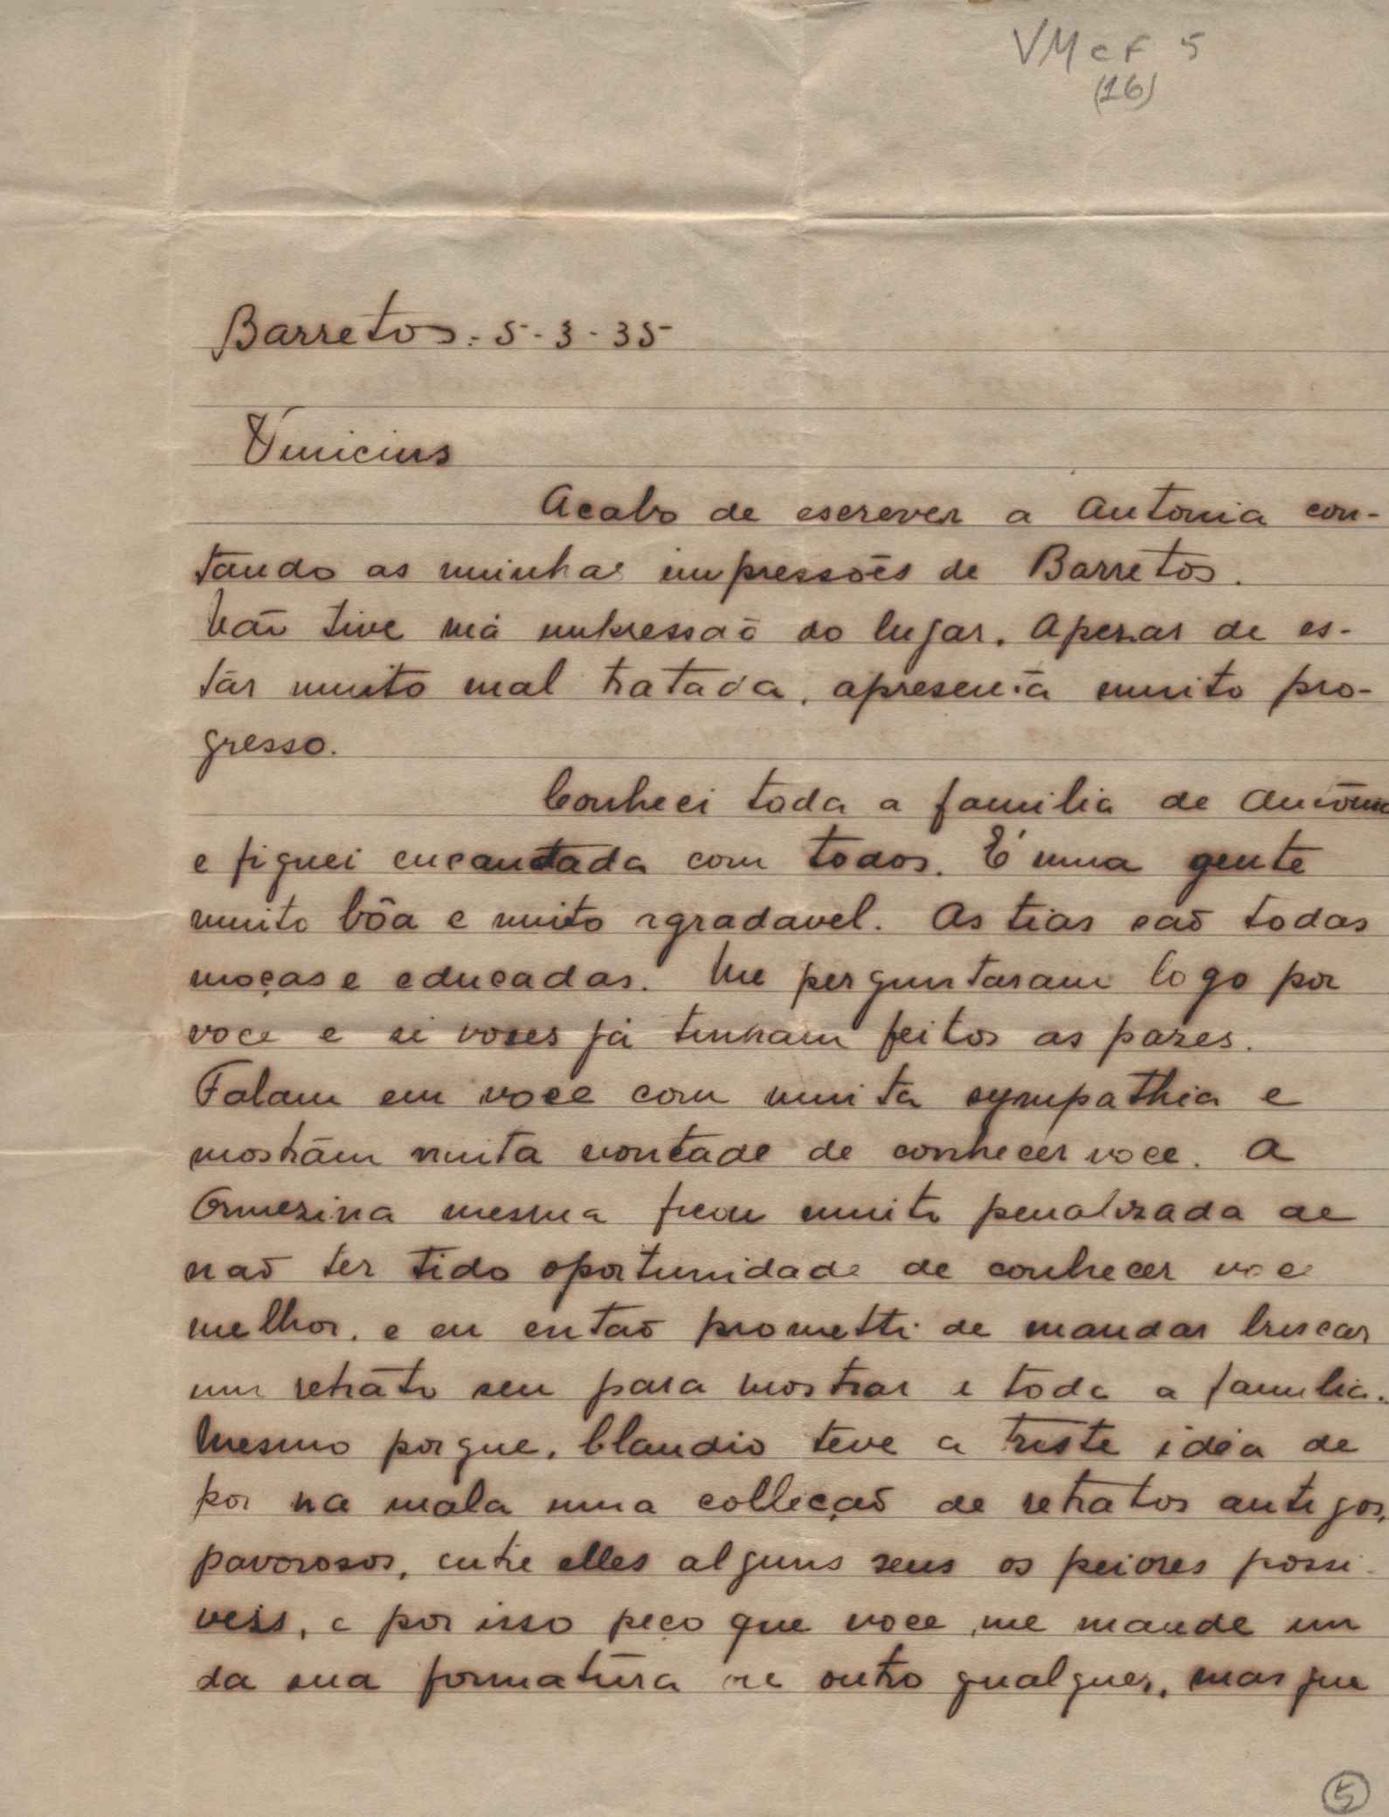 VMcf 5
(16)
Barretos - 5-3-35
Vinicius
Acabo de escrever a Antonia con-
tando as minhas impressões de Barretos.
Não tive má impressaõ do lugar. Apezar de es-
tár muito mal tratada, apresenta muito pro-
gresso.
Conheci toda a familia de
e fiquei encantada com todos. É uma gente
muito bôa e muito agradavel. As tias saõ todas
moças e educadas. Me perguntaram logo por
voce e si voces já tinham feitos as pazes.
Falam em voce com muita sympathia e
mostrám muita vontade de conhecer voce. A
Ormezina mesma ficou muito penalizada de
naõ ter tido oportunidade de conhecer voce
melhor, e eu entaõ prometti de mandar buscar
um retrato seu para mostrar a toda a familia.
Mesmo porque, Claudio teve a triste idéa de
por na mala uma collecçaõ de retratos antigos,
pavorosos, entre elles alguns seus os peiores possi-
veis, e por isso peço que voce me mande um
da sua formatura ou outro qualquer, mas que
5